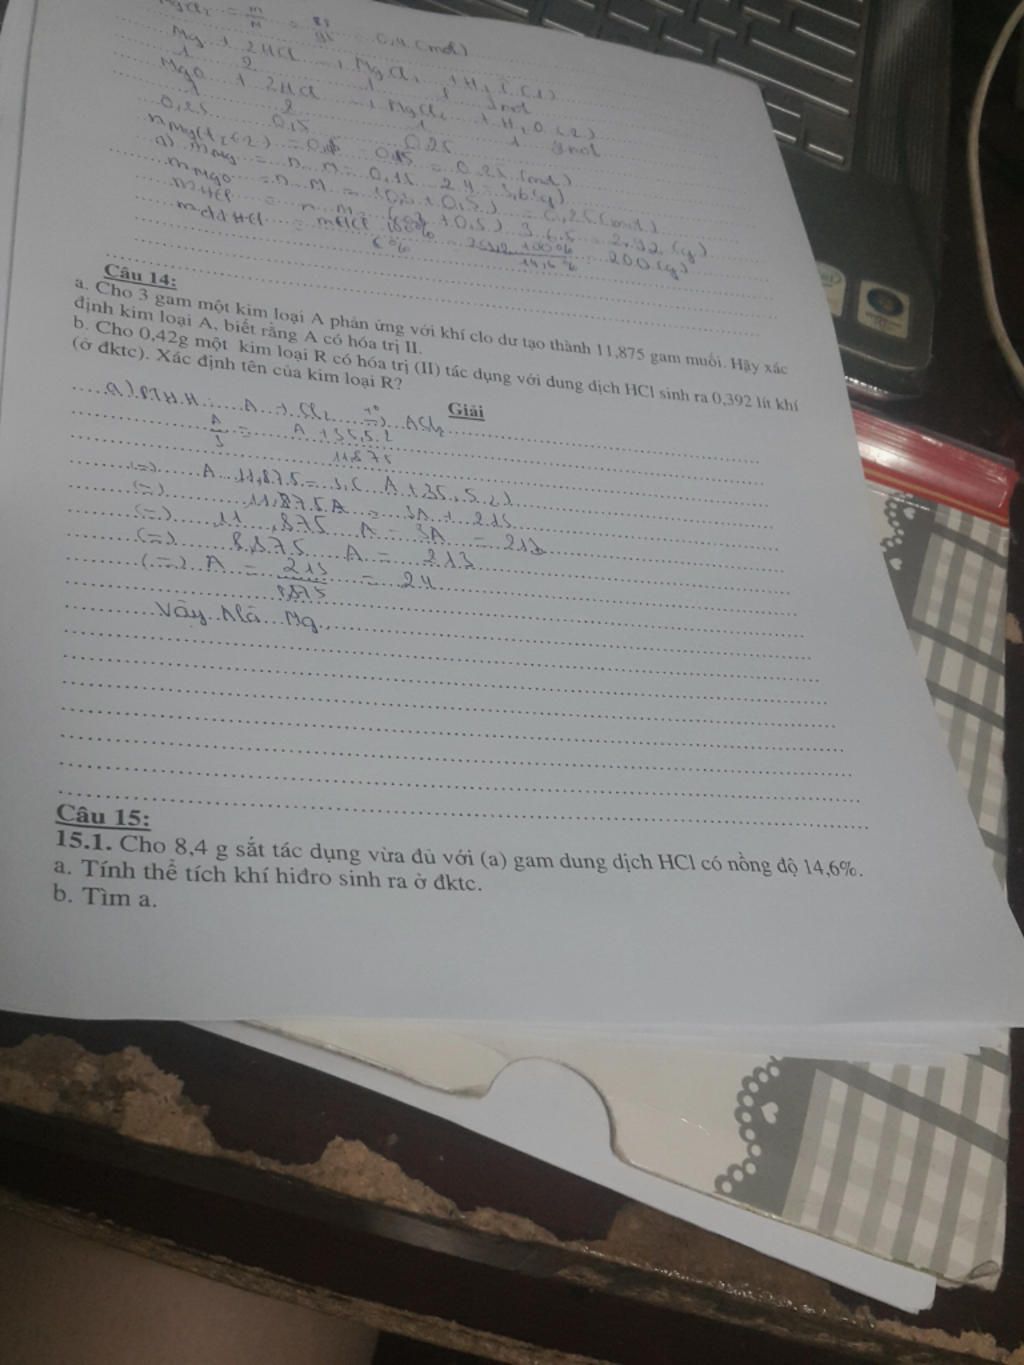 = 0,4 (mol)
Mg + 2HCl → MgCl₂ + H₂ (1)
1 2 1 1 mol
MgO + 2HCl → MgCl₂ + H₂O (2)
1 2 1 1 mol
0,25 0,5 0,25
= 0,25 (mol)
a) mMg = n.M = 0,15.24 = 3,6 (g)
mMgO = n.M =
= 200 (g)
Câu 14:
a. Cho 3 gam một kim loại A phản ứng với khí clo dư tạo thành 11,875 gam muối. Hãy xác
định kim loại A, biết rằng A có hóa trị II.
b. Cho 0,42g một kim loại R có hóa trị (II) tác dụng với dung dịch HCl sinh ra 0,392 lít khí
(ở đktc). Xác định tên của kim loại R?
Giải
a) PTHH: A + Cl₂ t° → ACl₂
A/3 = A + 35,5.2 / 11,875
(=) A.11,875 = 3.(A + 35,5.2)
(=) 11,875A = 3A + 213
(=) 11,875A - 3A = 213
(=) 8,875 A = 213
(=) A = 213/8,875 = 24
Vậy A là Mg
Câu 15:
15.1. Cho 8,4 g sắt tác dụng vừa đủ với (a) gam dung dịch HCl có nồng độ 14,6%.
a. Tính thể tích khí hiđro sinh ra ở đktc.
b. Tìm a.